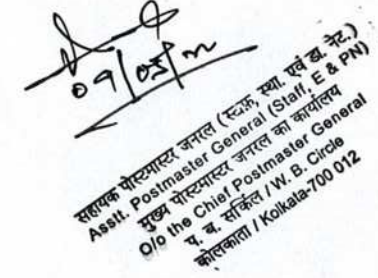 सहायक पोस्टमास्टर जनरल (स्टाफ, स्था. एवं डा. नेट.)
Asstt. Postmaster General (Staff, E & PN)
मुख्य पोस्टमास्टर जनरल का कार्यालय
O/o the Chief Postmaster General
प. बं. सर्किल / W. B. Circle
कोलकाता / Kolkata-700 012